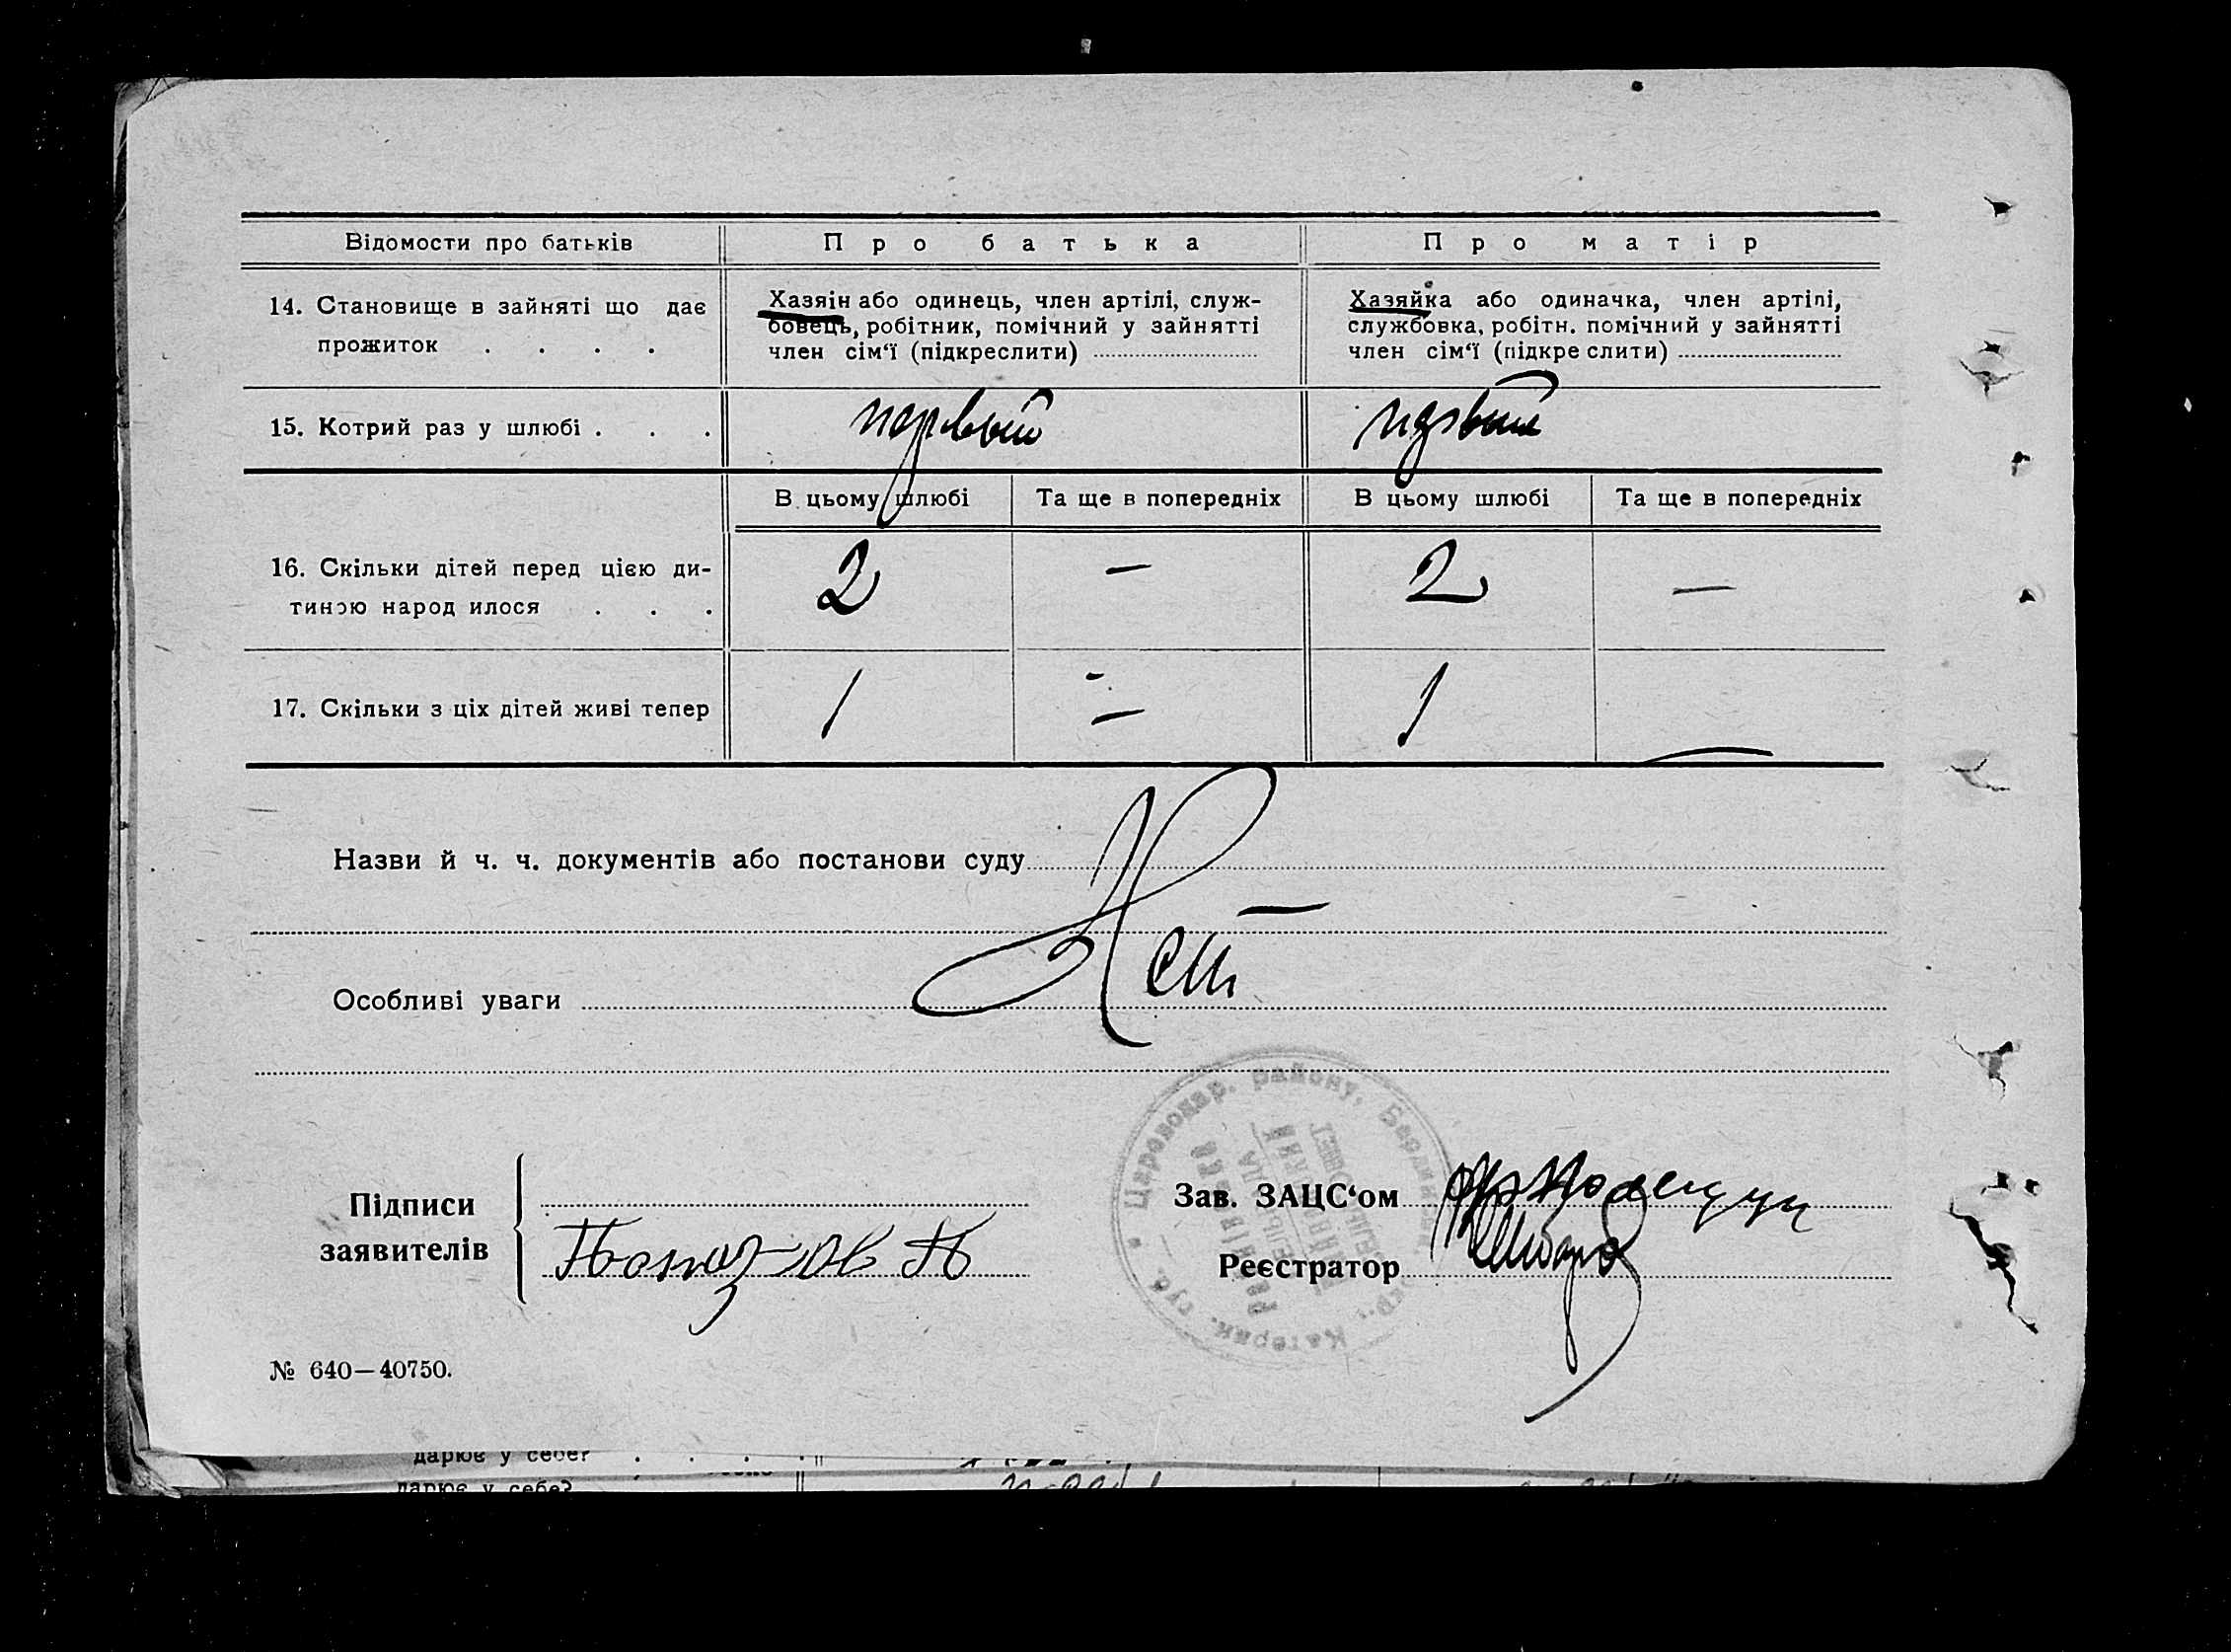 Відомости про батьків
Про батька
Про матір
14. Становище в зайняті що дає
прожиток . . . .
Хазяін або одинець, член артілі, служ-
бовець, робітник, помічний у зайнятті
член сім‘ї (підкреслити)
Хазяйка або одиначка, член артілі,
службовка, робітн. помічний у зайнятті
член сім‘ї (підкре слити)
15. Котрий раз у шлюбі . . .
первый
первый
В цьому шлюбі
Та ще в попередніх
В цьому шлюбі
Та ще в попередніх
16. Скільки дітей перед цією ди-
тиною народ илося . . .
2
—
2
—
17. Скільки з ціх дітей живі тепер
1
—
1
—
Назви й ч. ч. документів або постанови суду
Нет
Особливі уваги
Царевокар. району, Катерин. губ.
Підписи
заявителів
Зав. ЗАЦС‘ом
Реєстратор
№ 640—40750.
дарює у себе?
дарює у себе?